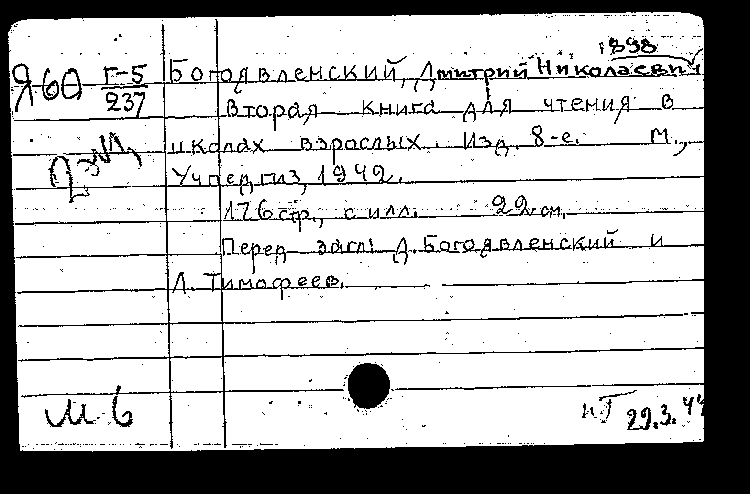 1898
Я60 Г-5 Богоявленский, Дмитрий Николаевич
237 Вторая книга для чтения в
школах взрослых. Изд. 8-е. М.,
Учпедгиз, 1942.
176 стр., с илл. 22 см.
Перед загл: Д. Богоявленский и
Л. Тимофеев.
М 6
29.3.44